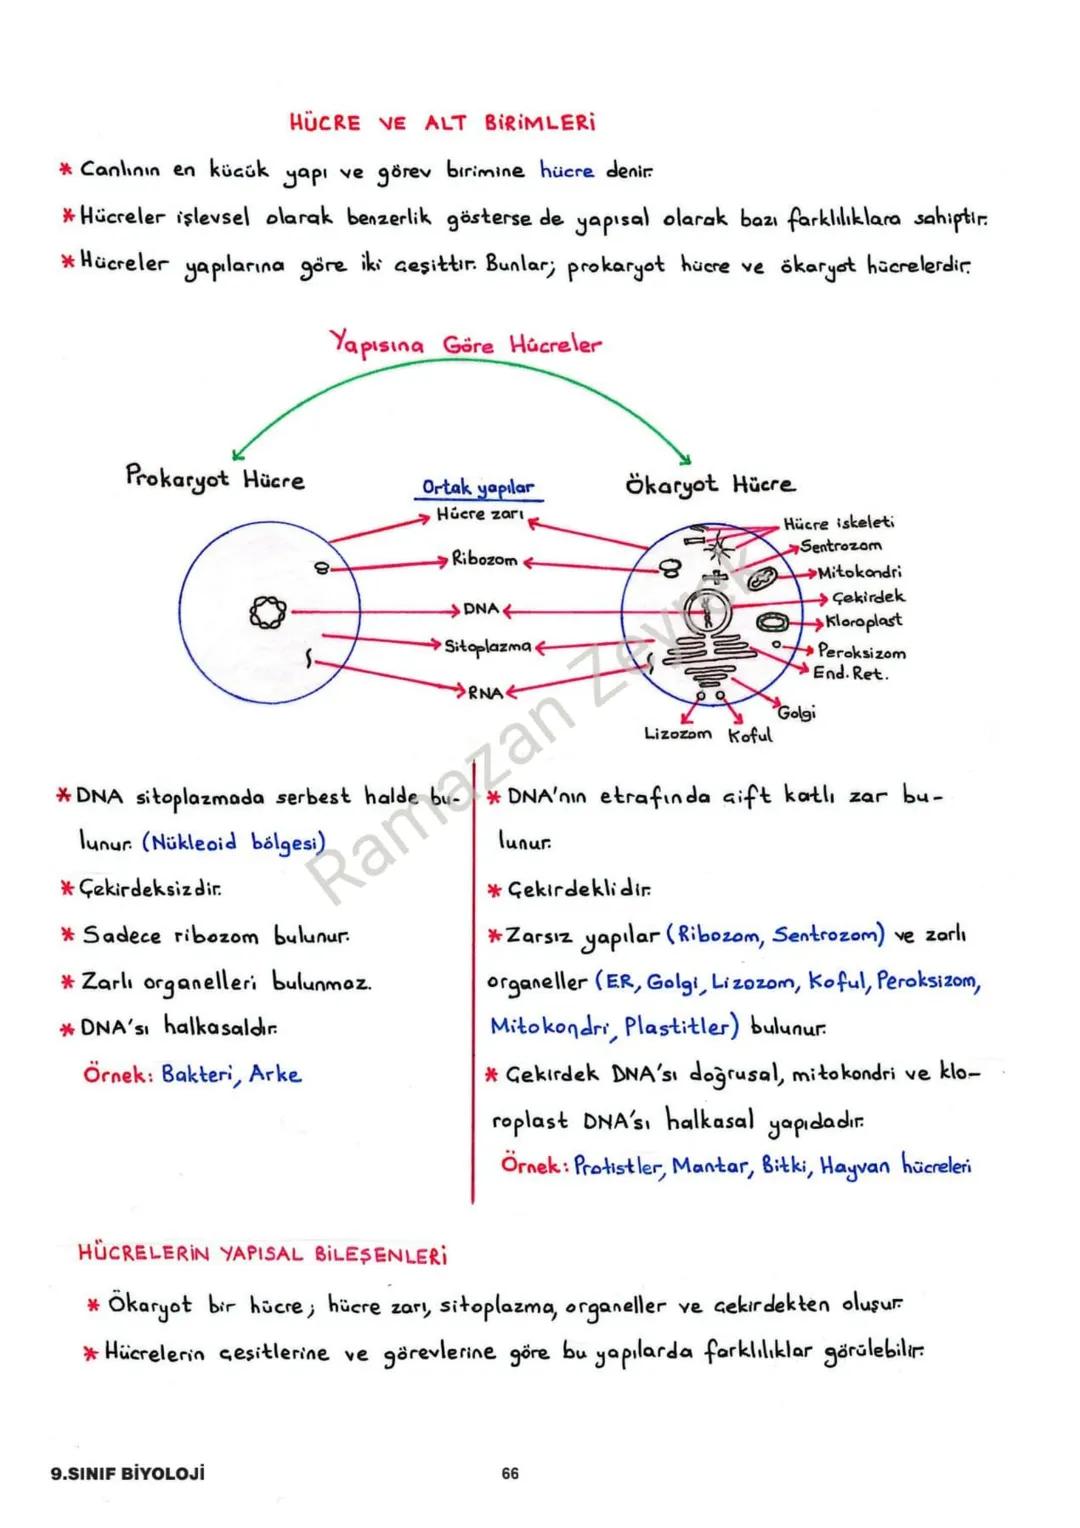 HÜCRE VE ALT BİRİMLERİ
* Canlının en küçük yapı ve görev birimine hücre denir.
* Hücreler işlevsel olarak benzerlik gösterse de yapısal olarak bazı farklılıklara sahiptir.
* Hücreler yapılarına göre iki çeşittir. Bunlar; prokaryot hücre ve ökaryot hücrelerdir.
Yapısına Göre Hücreler
Prokaryot Hücre
Ortak yapılar
Ökaryot Hücre
Hücre zarı
Ribozom
DNA
Sitoplazma
RNA
Hücre iskeleti
Sentrozom
Mitokondri
Çekirdek
Kloroplast
Peroksizom
End. Ret.
Golgi
Lizozom Koful
* DNA sitoplazmada serbest halde bu-
lunur. (Nükleoid bölgesi)
* Çekirdeksizdir.
* Sadece ribozom bulunur.
* Zarlı organelleri bulunmaz.
* DNA'sı halkasaldır.
Örnek: Bakteri, Arke
* DNA'nın etrafında çift katlı zar bu-
lunur.
* Çekirdeklidir.
* Zarsız yapılar (Ribozom, Sentrozom) ve zarlı
organeller (ER, Golgi, Lizozom, Koful, Peroksizom,
Mitokondri, Plastitler) bulunur.
* Çekirdek DNA'sı doğrusal, mitokondri ve klo-
roplast DNA'sı halkasal yapıdadır.
Örnek: Protistler, Mantar, Bitki, Hayvan hücreleri
Ramazan Zeyrek
HÜCRELERİN YAPISAL BİLEŞENLERİ
* Ökaryot bir hücre; hücre zarı, sitoplazma, organeller ve çekirdekten oluşur.
* Hücrelerin çeşitlerine ve görevlerine göre bu yapılarda farklılıklar görülebilir.
9.SINIF BİYOLOJİ
66